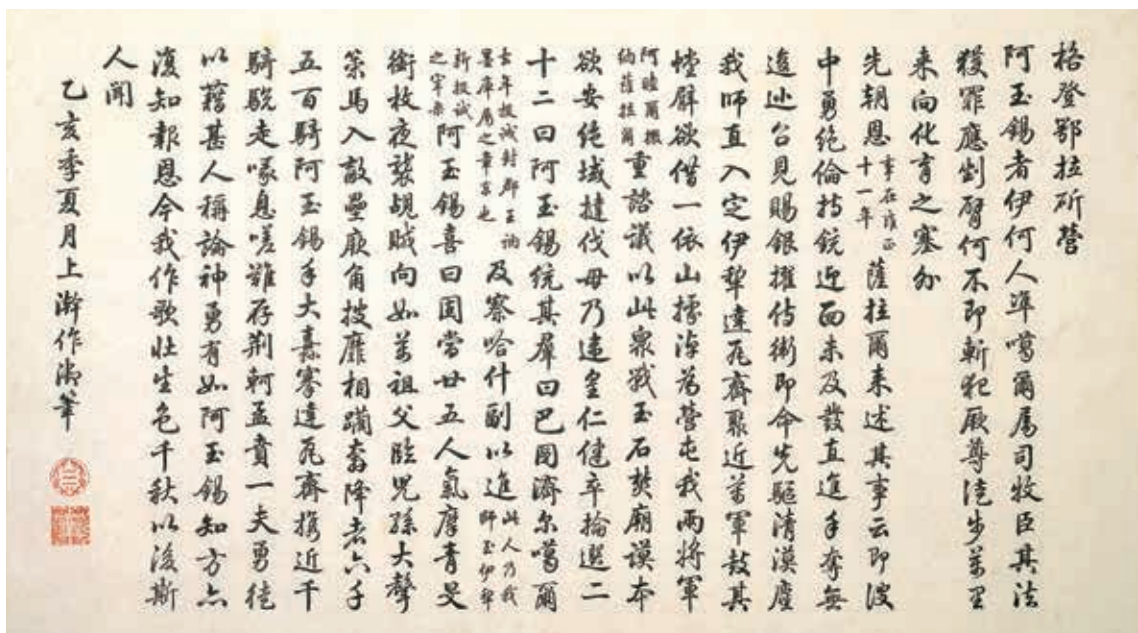 格登鄂拉斫營
阿玉錫者伊何人準噶爾屬司牧臣其法
獲罪應剉臂何不即斬犯厥尊徒步萬里
来向化育之塞外
先朝恩事在雍正十一年薩拉爾来述其事云即彼
中勇絕倫持銃近面未及發直進手奪無
逡巡召見賜銀擢侍衛即命先驅清漠塵
我師直入定伊犂達瓦齊聚近萬軍鼓其
螳臂欲借一依山據淖為營屯我兩將軍
阿睦爾撒納薩拉爾重諮議以此衆戰玉石焚廟謨本
欲安絕域撻伐毋乃違皇仁健卒掄選二
十二曰阿玉錫統其羣曰巴圖濟尔噶爾
去年投誠封郡王訥墨庫属之章京也及察哈什副以進此人乃我師至伊犂
新投誠之宰桑阿玉錫喜曰固當廿五人氣摩青旻
銜枚夜襲覘賊向如萬祖父臨兒孫大聲
策馬入敵壘厥角披靡相躪奔降者六千
五百騎阿玉錫手大纛搴達瓦齊携近千
騎駾走喙息嗟難存荊軻孟賁一夫勇徒
以藉甚人稱論神勇有如阿玉錫知方亦
復知報恩今我作歌壯生色千秋以後斯
人聞
乙亥季夏月上澣作御筆